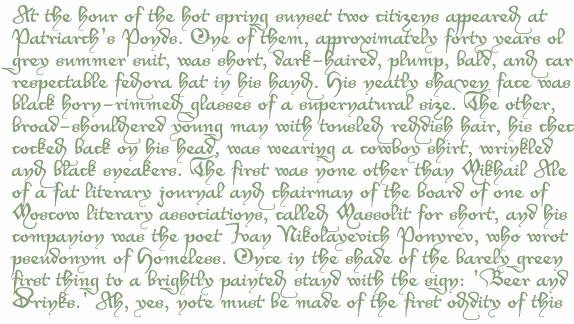 At the hour of the hot spring sunset two citizens appeared at
Patriarch's Ponds. One of them, approximately forty years ol
grey summer suit, was short, dark-haired, plump, bald, and car
respectable fedora hat in his hand. His neatly shaven face was
black horn-rimmed glasses of a supernatural size. The other,
broad-shouldered young man with tousled reddish hair, his chec
cocked back on his head, was wearing a cowboy shirt, wrinkled
and black sneakers. The first was none other than Mikhail Ale
of a fat literary journal and chairman of the board of one of
Moscow literary associations, called Massolit for short, and his
companion was the poet Ivan Nikolayevich Ponyrev, who wrot
pseudonym of Homeless. Once in the shade of the barely green
first thing to a brightly painted stand with the sign: 'Beer and
Drinks.' Ah, yes, note must be made of the first oddity of this